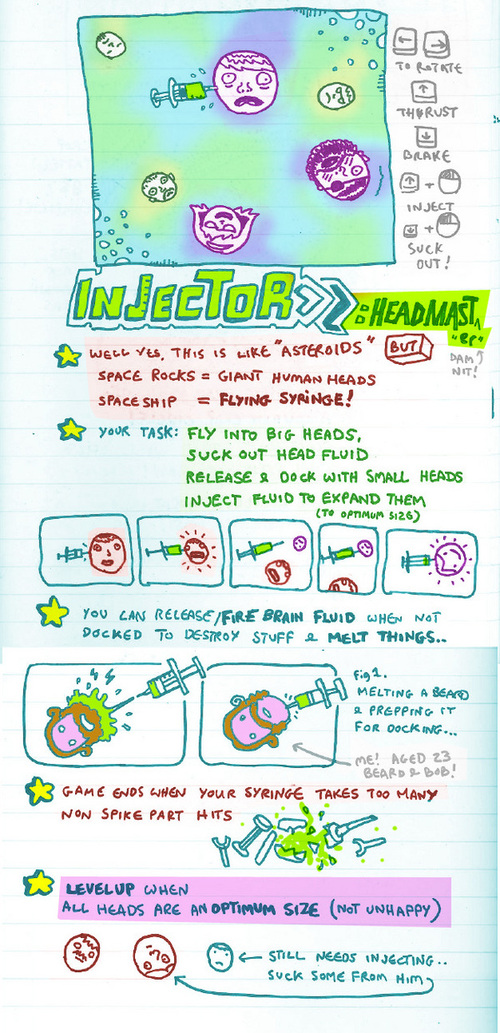 TO ROTATE
THRUST
BRAKE
+
INJECT
+
SUCK
OUT!
INJECTOR
OR HEADMAST
"er"
DAM
NIT!
WELL YES, THIS IS LIKE "ASTEROIDS" BUT
SPACE ROCKS = GIANT HUMAN HEADS
SPACESHIP = FLYING SYRINGE!
YOUR TASK: FLY INTO BIG HEADS,
SUCK OUT HEAD FLUID
RELEASE & DOCK WITH SMALL HEADS
INJECT FLUID TO EXPAND THEM
(TO OPTIMUM SIZE)
YOU CAN RELEASE/FIRE BRAIN FLUID WHEN NOT
DOCKED TO DESTROY STUFF & MELT THINGS..
Fig 1.
MELTING A BEARD
& PREPPING IT
FOR DOCKING...
ME! AGED 23
BEARD & BOB!
GAME ENDS WHEN YOUR SYRINGE TAKES TOO MANY
NON SPIKE PART HITS
LEVELUP WHEN
ALL HEADS ARE AN OPTIMUM SIZE (NOT UNHAPPY)
STILL NEEDS INJECTING..
SUCK SOME FROM HIM